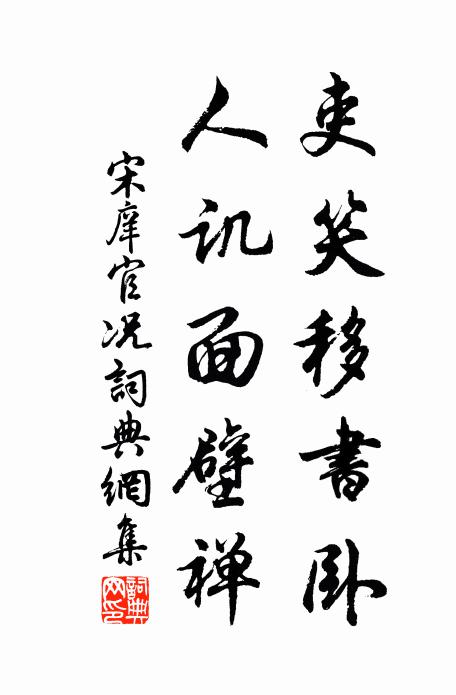 吏笑移書卧
人讥面壁禅
宋庠官况詞典網集
詞典网印